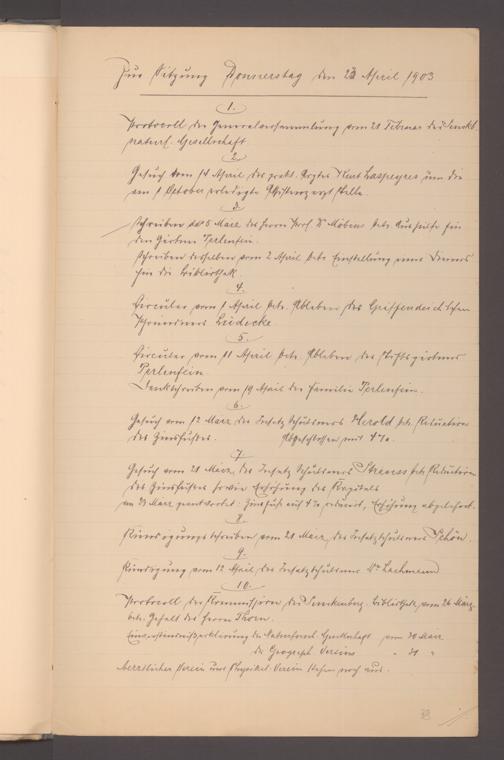 Zur Sitzung Donnerstag den 23 April 1903
1.
Protocoll der Generalversammlung vom 21 Februar der Senckb.
naturf. Gesellschaft
2.
Gesuch vom 14 April des prakt. Arztes Kurt Laspeyres um die
am 1 October erledigte Assistenzarztstelle.
3.
Schreiben vom 6 März des Herrn Prof. Dr Möbius betr. Aushilfe für
den Gärtner Perlenfein.
Schreiben desselben vom 2 April betr. Einstellung eines Dieners
für die Bibliothek.
4.
Circular vom 1 April betr. Ableben des
Leidecke
5.
Circular vom 11 April betr. Ableben des Stiftsgärtners
Perlenfein.
Dankschreiben vom 19 April der Familie Perlenfein.
6.
Gesuch vom 12 März des Insatzschuldners Herold betr. Reduction
des Zinsfußes. Abgeschlossen mit 4%.
7.
Gesuch vom 21 März, des Insatz Schuldners Strauss betr. Reduction
des Zinsfußes sowie Erhöhung des Kapitals
am 23 März geantwortet. Zinsfuß auf 4% reducirt, Erhöhung abgelehnt.
8.
Kündigungsschreiben vom 21 März, des Insatzschuldners Schön.
9.
Kündigung vom 12 April, des Insatzschuldners Lachmann
10.
Protocoll der Kommission der Senckenberg. Bibliothek, vom 26 März
betr. Gehalt des Herrn Thorn.
Einverständnißerklärung der Naturforsch. Gesellschaft vom 30 März
der Geograph. Vereins " 31 "
Aerztlicher Verein und Physikal. Verein stehen noch aus.